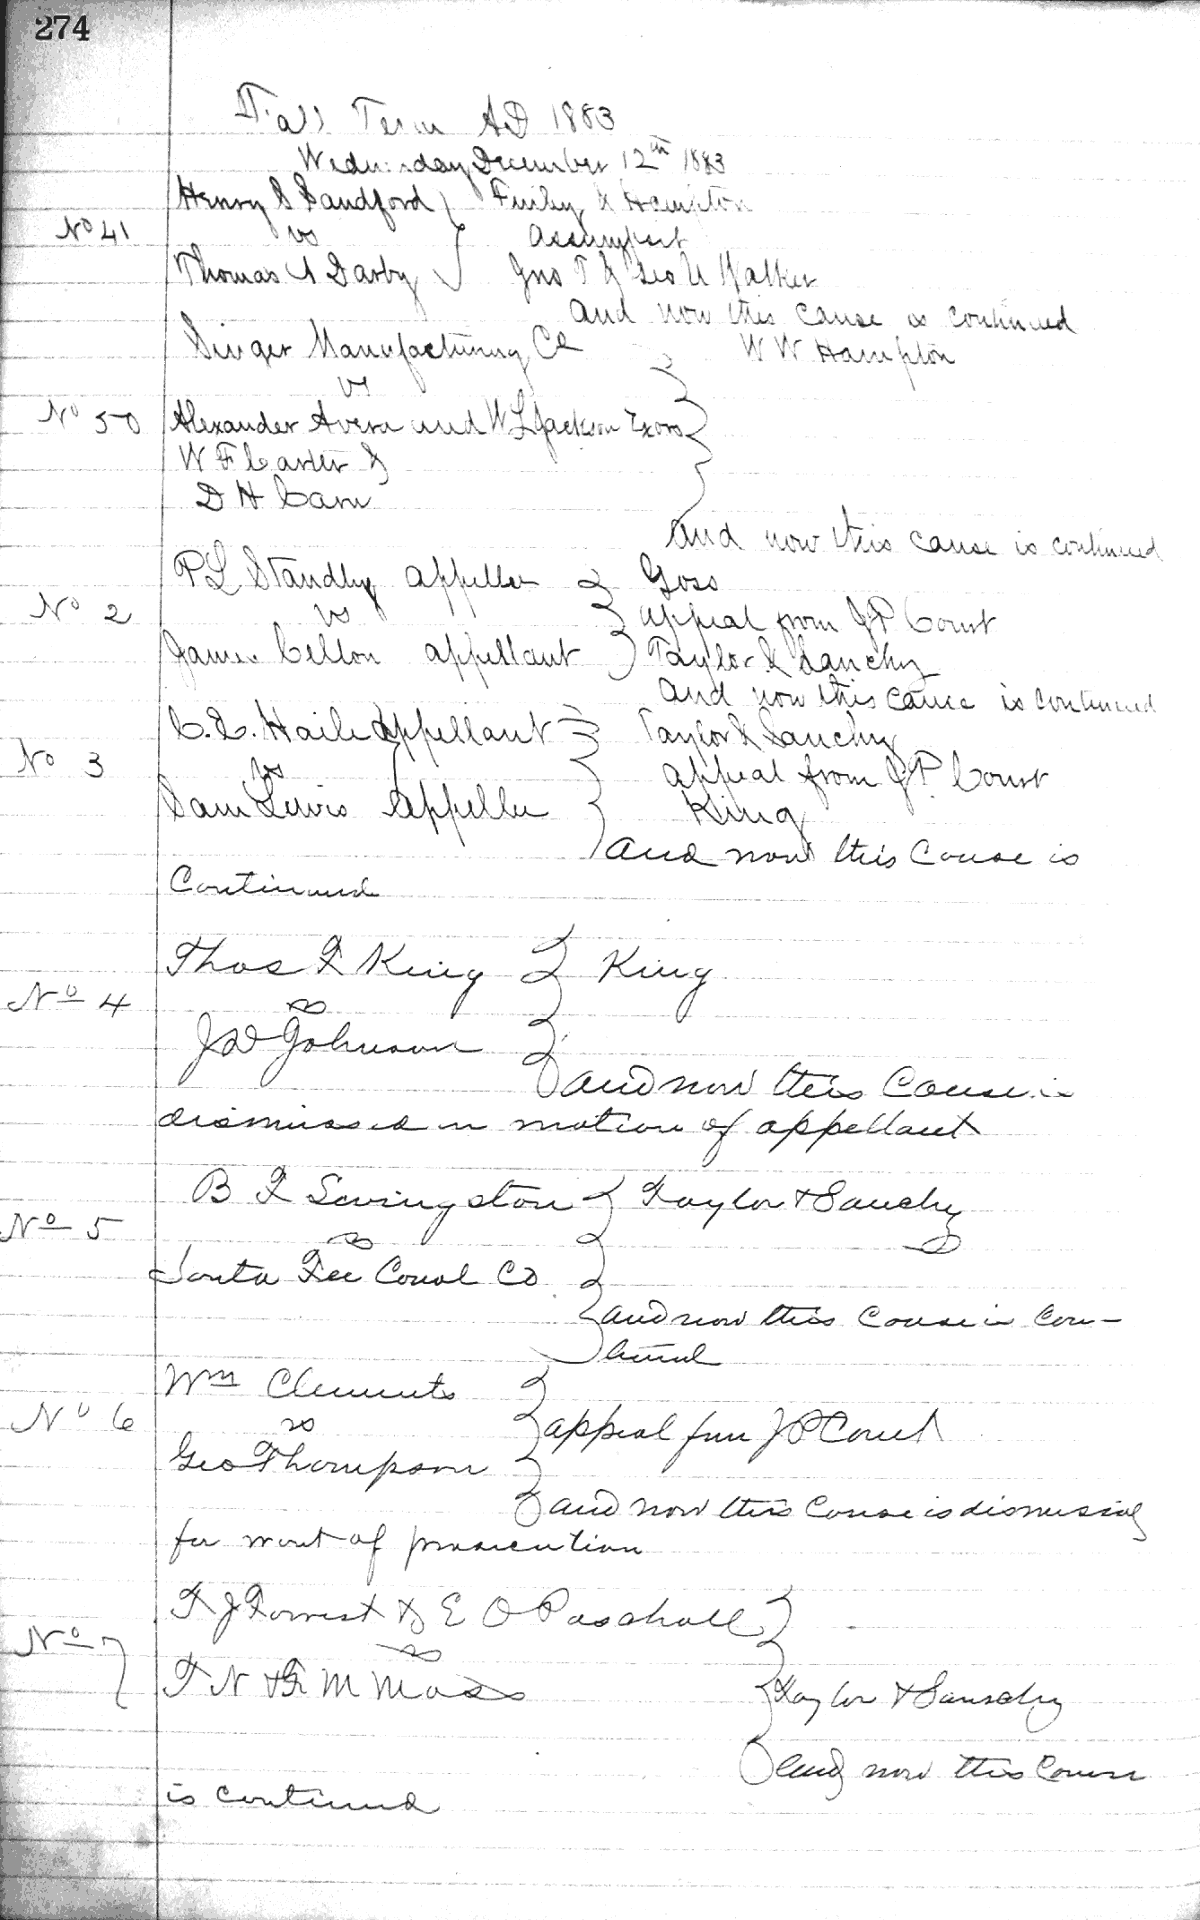 274
Fall Term AD 1883
Wednesday December 12th 1883
Henry S Sandford Finley & Hampton
No 41 vs Assumpsit
Thomas A Darby Jno T & Geo U Walker
and now this cause is continued
Singer Manufacturing Co W W Hampton
vs
No 50 Alexander Avera and W L Jackson Exors
W F Carter &
D H Cam
and now this cause is continued
P L Standley appellee Goss
No 2 vs appeal from J P Court
James Cellon appellant Taylor & Sanchez
and now this cause is continued
C. E. Haile appellant Taylor & Sanchez
No 3 vs appeal from J P. Court
Sam Lewis Appellee King
and now this Cause is
Continued
Thos F King King
No 4 vs
J W Johnson
and now this Cause is
dismissed on motion of appellant
B F Livingston Taylor & Sanchez
No 5 vs
Santa Fee Canal Co
and now this Cause is Con-
tinued
Wm Clements
No 6 vs appeal from J P Court
Geo Thompson
and now this Cause is dismissed
for want of prosecution
T J Forrest & E O Paschall
No 7 vs
T N & G M Moss Taylor & Sanchez
and now this Cause
is continued